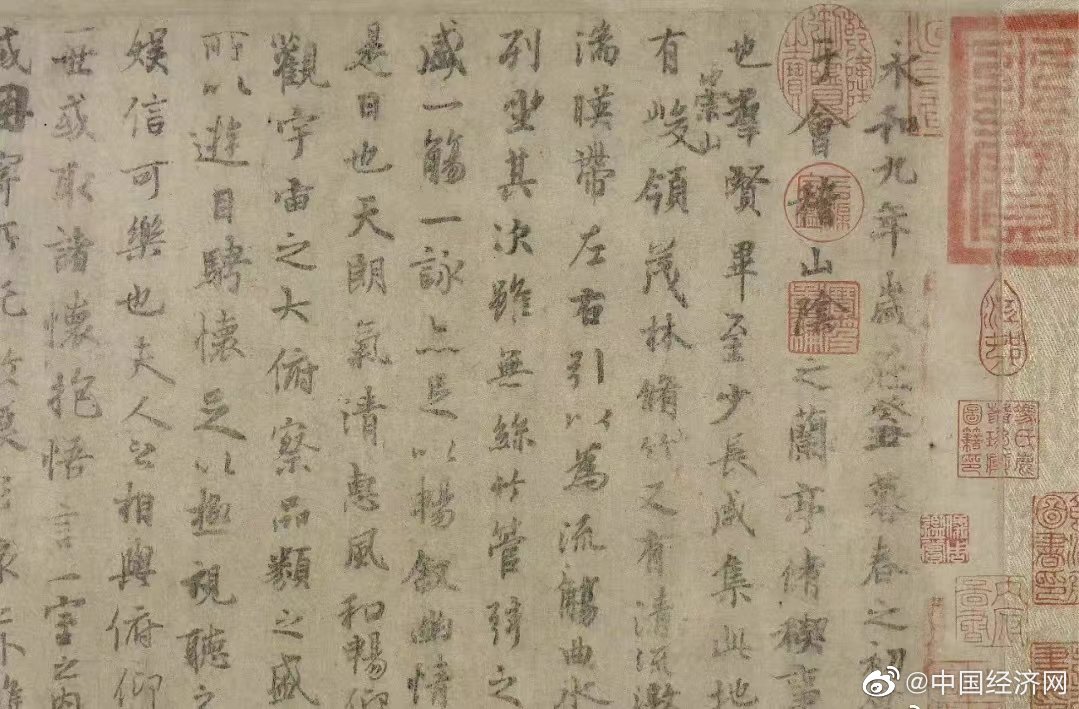 永和九年歲在癸丑暮春之初
于會稽山陰之蘭亭脩禊事
也羣賢畢至少長咸集此地
有崇山峻領茂林脩竹又有清流激
湍暎帶左右引以為流觴曲水
列坐其次雖無絲竹管弦之
盛一觴一詠亦足以暢敘幽情
是日也天朗氣清惠風和暢仰
觀宇宙之大俯察品類之盛
所以遊目騁懷足以極視聽之
娛信可樂也夫人之相與俯仰
一世或取諸懷抱悟言一室之內
或因寄所託
@中国经济网